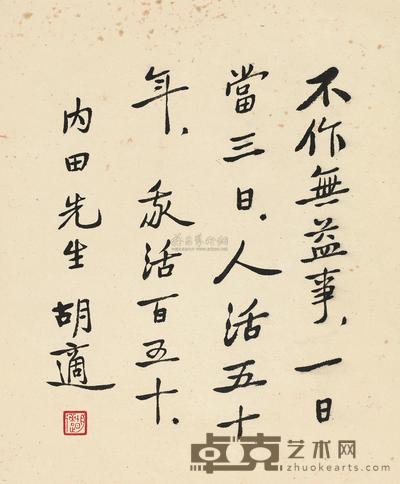 不作無益事，一日
當三日，人活五十
年，我活百五十，
内田先生 胡適
卓克艺术网
www.zhuokearts.com